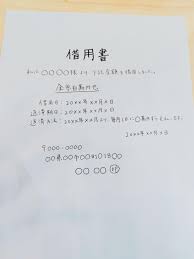 借用書
私は、〇〇〇〇様より下記金額を借用しました。
金壱百萬円也
借用日:20XX年XX月X日
返済期日:20XX年XX月X日
返済方法:20XX年XX月より、毎月
20XX年XX月X日
〒000-0000
〇〇県〇〇市〇〇町1丁目〇〇
〇〇 〇〇 印